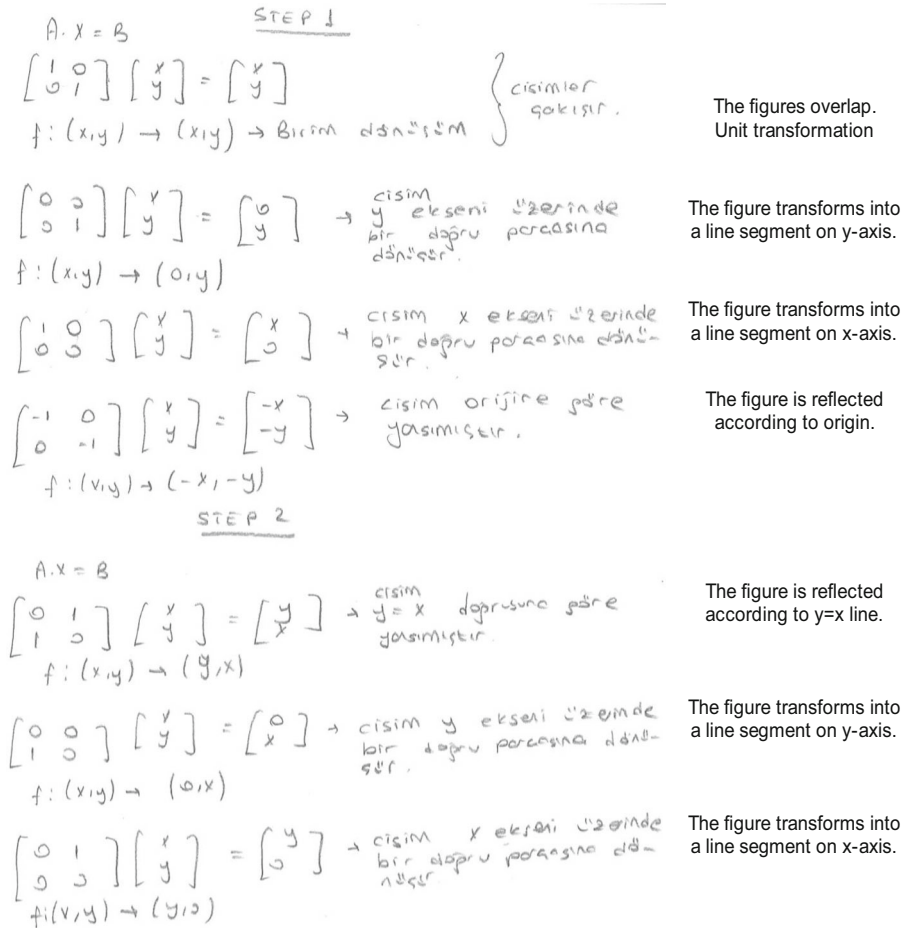 STEP 1
A. X = B
[1 0; 0 1] [x; y] = [x; y]
f : (x,y) → (x,y) → Birim dönüşüm
} cisimler
çakışır.
The figures overlap.
Unit transformation
[0 0; 0 1] [x; y] = [0; y] → cisim
y ekseni üzerinde
bir doğru parçasına
dönüşür.
f : (x,y) → (0,y)
The figure transforms into
a line segment on y-axis.
[1 0; 0 0] [x; y] = [x; 0] → cisim x ekseni üzerinde
bir doğru parçasına dönü-
şür.
The figure transforms into
a line segment on x-axis.
[-1 0; 0 -1] [x; y] = [-x; -y] → cisim orijine göre
yansımıştır.
f : (x,y) → (-x, -y)
The figure is reflected
according to origin.
STEP 2
A.X = B
[0 1; 1 0] [x; y] = [y; x] → cisim
y = x doğrusuna göre
yansımıştır.
f : (x,y) → (y,x)
The figure is reflected
according to y=x line.
[0 0; 1 0] [x; y] = [0; x] → cisim y ekseni üzerinde
bir doğru parçasına dönü-
şür.
f : (x,y) → (0,x)
The figure transforms into
a line segment on y-axis.
[0 1; 0 0] [x; y] = [y; 0] → cisim x ekseni üzerinde
bir doğru parçasına dö-
nüşür
f:(x,y) → (y,0)
The figure transforms into
a line segment on x-axis.